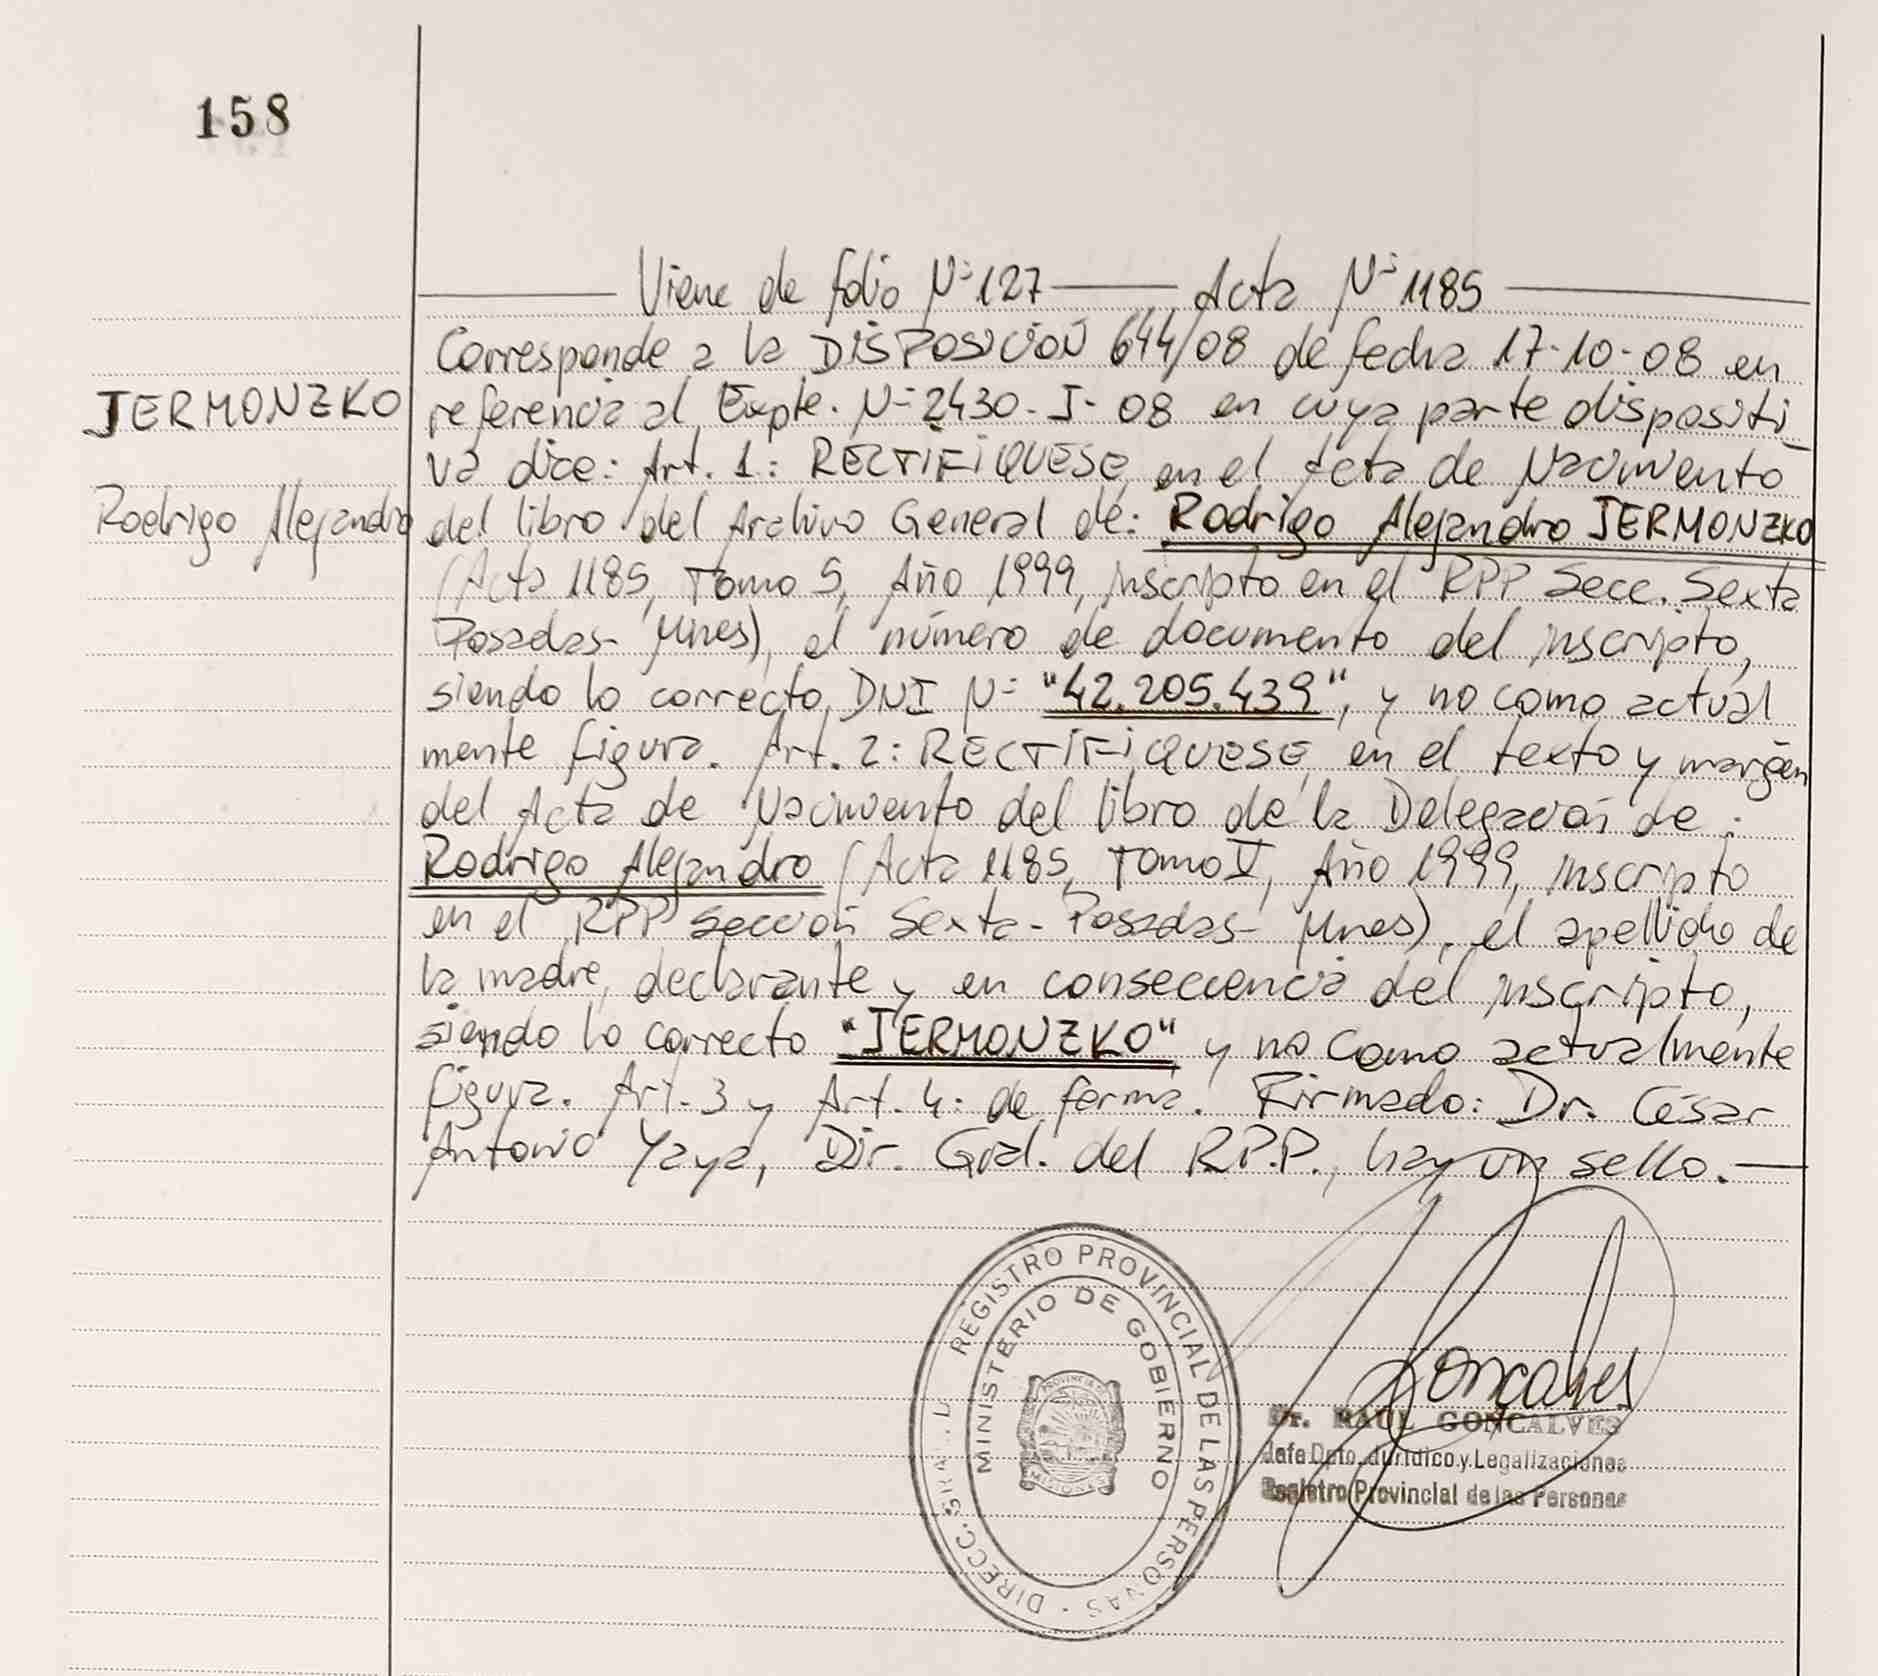 158
Viene de folio Nº 127 — Acta Nº 1185
Corresponde a la DISPOSICIÓN 644/08 de fecha 17-10-08 en
JERMONZKO
referencia al Expte. Nº 2430-I-08 en cuya parte dispositi
va dice: Art. 1: RECTIFIQUESE, en el Acta de Nacimiento
Rodrigo Alejandro
del libro del Archivo General de: Rodrigo Alejandro JERMONZKO
(Acta 1185, Tomo 5, Año 1999, inscripto en el RPP Secc. Sexta
Posadas- Mnes), el número de documento del inscripto,
siendo lo correcto DNI Nº "42.205.439", y no como actual
mente figura. Art. 2: RECTIFIQUESE, en el texto y margen
del Acta de Nacimiento del libro de la Delegación de:
Rodrigo Alejandro (Acta 1185, Tomo V, Año 1999, inscripto
en el RPP sección Sexta- Posadas- Mnes), el apellido de
la madre, declarante y en consecuencia del inscripto,
siendo lo correcto "JERMONZKO" y no como actualmente
figura. Art. 3 y Art. 4: de forma. Firmado: Dr. César
Antonio Yaya, Dir. Gral. del R.P.P., hay un sello.—
REGISTRO PROVINCIAL DE LAS PERSONAS - DIRECC. GRAL.
MINISTERIO DE GOBIERNO
PROVINCIA
MISIONES
Goncalves
Dr. RAUL GONCALVES
Jefe Dpto. Jurídico y Legalizaciones
Registro Provincial de las Personas